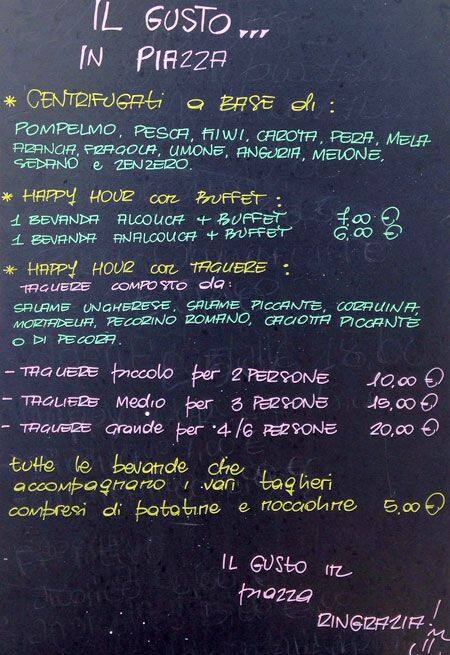 IL GUSTO...
IN PIAZZA
* CENTRIFUGATI a BASE di:
POMPELMO, PESCA, KIWI, CAROTA, PERA, MELA
ARANCIA, FRAGOLA, LIMONE, ANGURIA, MELONE,
SEDANO e ZENZERO.
* HAPPY HOUR con BUFFET:
1 BEVANDA ALCOLICA + BUFFET 7,00 €
1 BEVANDA ANALCOLICA + BUFFET 6,00 €
* HAPPY HOUR con TAGLIERE:
TAGLIERE COMPOSTO da:
SALAME UNGHERESE, SALAME PICCANTE, CORALLINA,
MORTADELLA, PECORINO ROMANO, CACIOTTA PICCANTE
O DI PECORA.
- TAGLIERE piccolo per 2 PERSONE 10,00 €
- TAGLIERE Medio per 3 PERSONE 15,00 €
- TAGLIERE Grande per 4/6 PERSONE 20,00 €
tutte le bevande che
accompagnano i vari taglieri
compresi di patatine e noccioline 5,00 €
IL GUSTO in
piazza
RINGRAZIA!